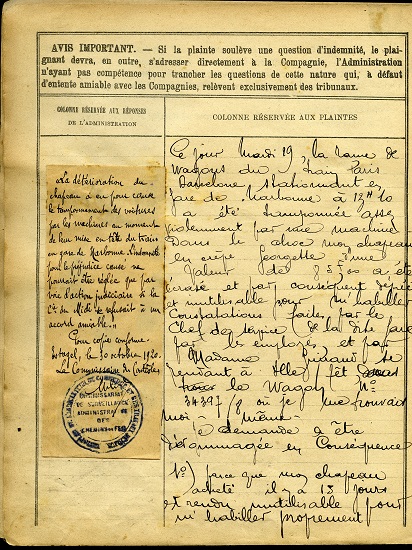 AVIS IMPORTANT. — Si la plainte soulève une question d'indemnité, le plai-
gnant devra, en outre, s'adresser directement à la Compagnie, l'Administration
n'ayant pas compétence pour trancher les questions de cette nature qui, à défaut
d'entente amiable avec les Compagnies, relèvent exclusivement des tribunaux.
COLONNE RÉSERVÉE AUX RÉPONSES
DE L'ADMINISTRATION
« La détérioration du
chapeau a eu pour cause
le tamponnement des voitures
par les machines au moment
de leur mise en tête du train
en gare de Narbonne. L'indemnité
pour le préjudice causé ne
pourrait être réglée que par
voie d'action judiciaire si la
Cie du Midi se refusait à un
accord amiable. »
Pour copie conforme
le 30 octobre 1920.
Le Commissaire du Contrôle
COMMISSARIAT
DE SURVEILLANCE
ADMINISTRATIVE
DES
CHEMINS DE FER
COLONNE RÉSERVÉE AUX PLAINTES
Ce jour Mardi 19, la rame de
Wagons du train Paris
Barcelone stationnant en
gare de Narbonne à 12H 10
a été tamponnée assez
violemment par une machine
Dans le choc mon chapeau
en crêpe Georgette d'une
Valeur de a été
écrasé et par conséquent déplacé
et inutilisable pour m'habiller
Constatations faites par le
Chef de service de la dite gare
par les employés et par
Madame se
rendant à
le Wagon No
34397/8 où je me trouvais
moi-même.
Je demande à être
dédommagée en Conséquence
parce que mon chapeau
acheté il y a 15 jours
est rendu inutilisable pour
m'habiller proprement